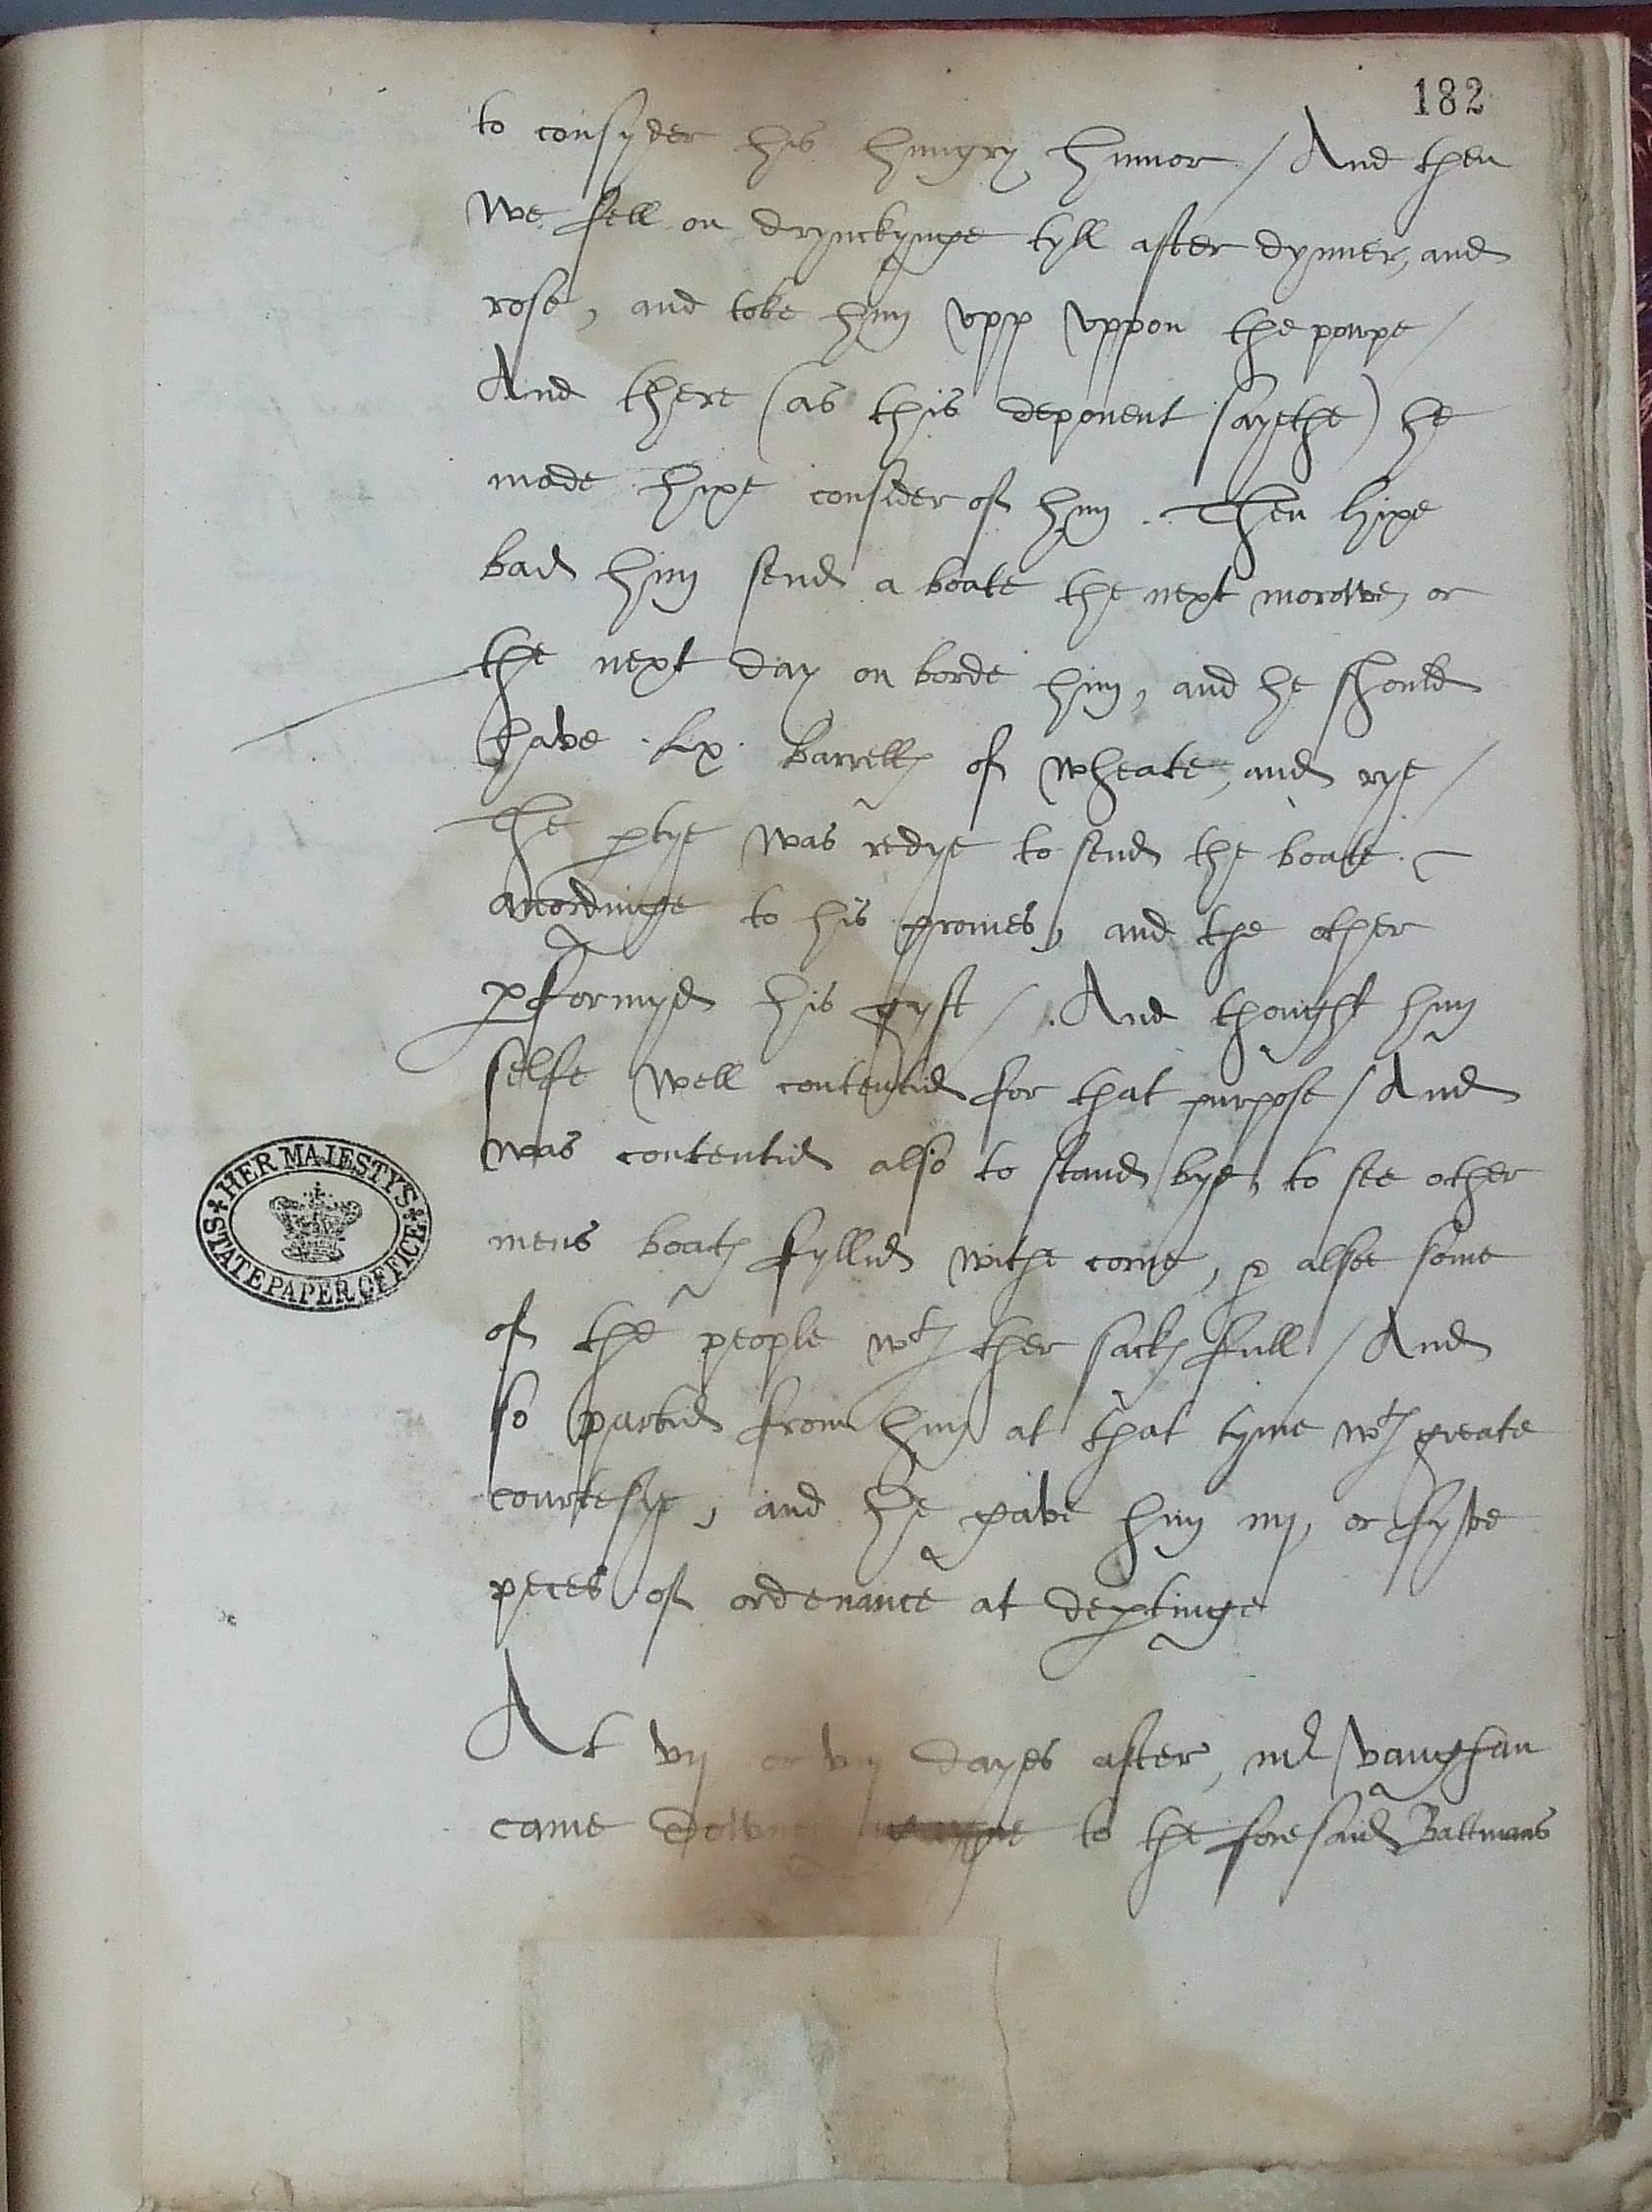 182
to consyder his hungry humor / And then
we fell on drynckynge tyll after dynner, and
rose, and toke hym upp uppon the poupe /
And there (as this deponent sayethe) he
made hixe consider of hym. Then hixe
bad hym send a boate the next morowe, or
the next day on borde hym, and he should
have .six. barrells of wheate, and rye /
The ptye was redye to send the boate
accordinge to his promes, and the other
pformyd his gyft /. And thought hym
selfe well contentid for that purpose / And
was contentid also to stand bye, to see other
mens boats fyllid withe corne, & alsoe some
of the people wth ther sacks full / And
so partid from hym at that tyme wth greate
courtesye, and he gave hym iiij, or fyve
peces of ordenance at deptinge
At vij or viij dayes after, mr vaughan
came downe to the foresaid Battmans
HER MAJESTY'S
STATE PAPER OFFICE